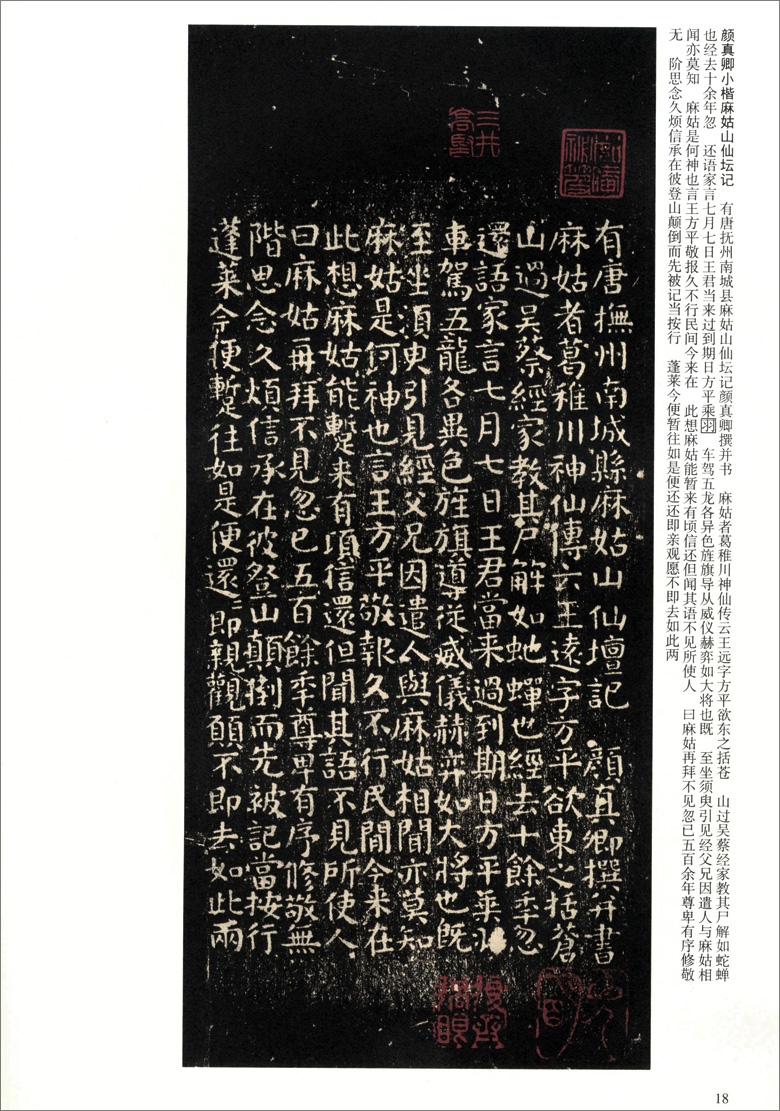 颜真卿小楷麻姑山仙坛记　有唐抚州南城县麻姑山仙坛记颜真卿撰并书　麻姑者葛稚川神仙传云王远字方平欲东之括苍　山过吴蔡经家教其尸解如蛇蝉
也经去十余年忽　还语家言七月七日王君当来过到期日方平乘羽　车驾五龙各异色旌旗导从威仪赫弈如大将也既　至坐须臾引见经父兄因遣人与麻姑相
闻亦莫知　麻姑是何神也言王方平敬报久不行民间今来在　此想麻姑能暂来有顷信还但闻其语不见所使人　曰麻姑再拜不见忽已五百余年尊卑有序修敬
无　阶思念久烦信承在彼登山颠倒而先被记当按行　蓬莱今便暂往如是便还还即亲观愿不即去如此两
三井高堅
有唐撫州南城縣麻姑山仙壇記　顏真卿撰并書
麻姑者葛稚川神仙傳云王遠字方平欲東之括蒼
山過吳蔡經家教其尸解如虵蟬也經去十餘年忽
還語家言七月七日王君當来過到期日方平乗
車駕五龍各異色旌旗導從威儀赫弈如大將也既
至坐須臾引見經父兄因遣人與麻姑相聞亦莫知
麻姑是何神也言王方平敬報久不行民間今来在
此想麻姑能暫来有頃信還但聞其語不見所使人
曰麻姑再拜不見忽已五百餘年尊卑有序修敬無
階思念久煩信承在彼登山顛倒而先被記當按行
蓬萊今便暫往如是便還〻即親觀願不即去如此兩
18